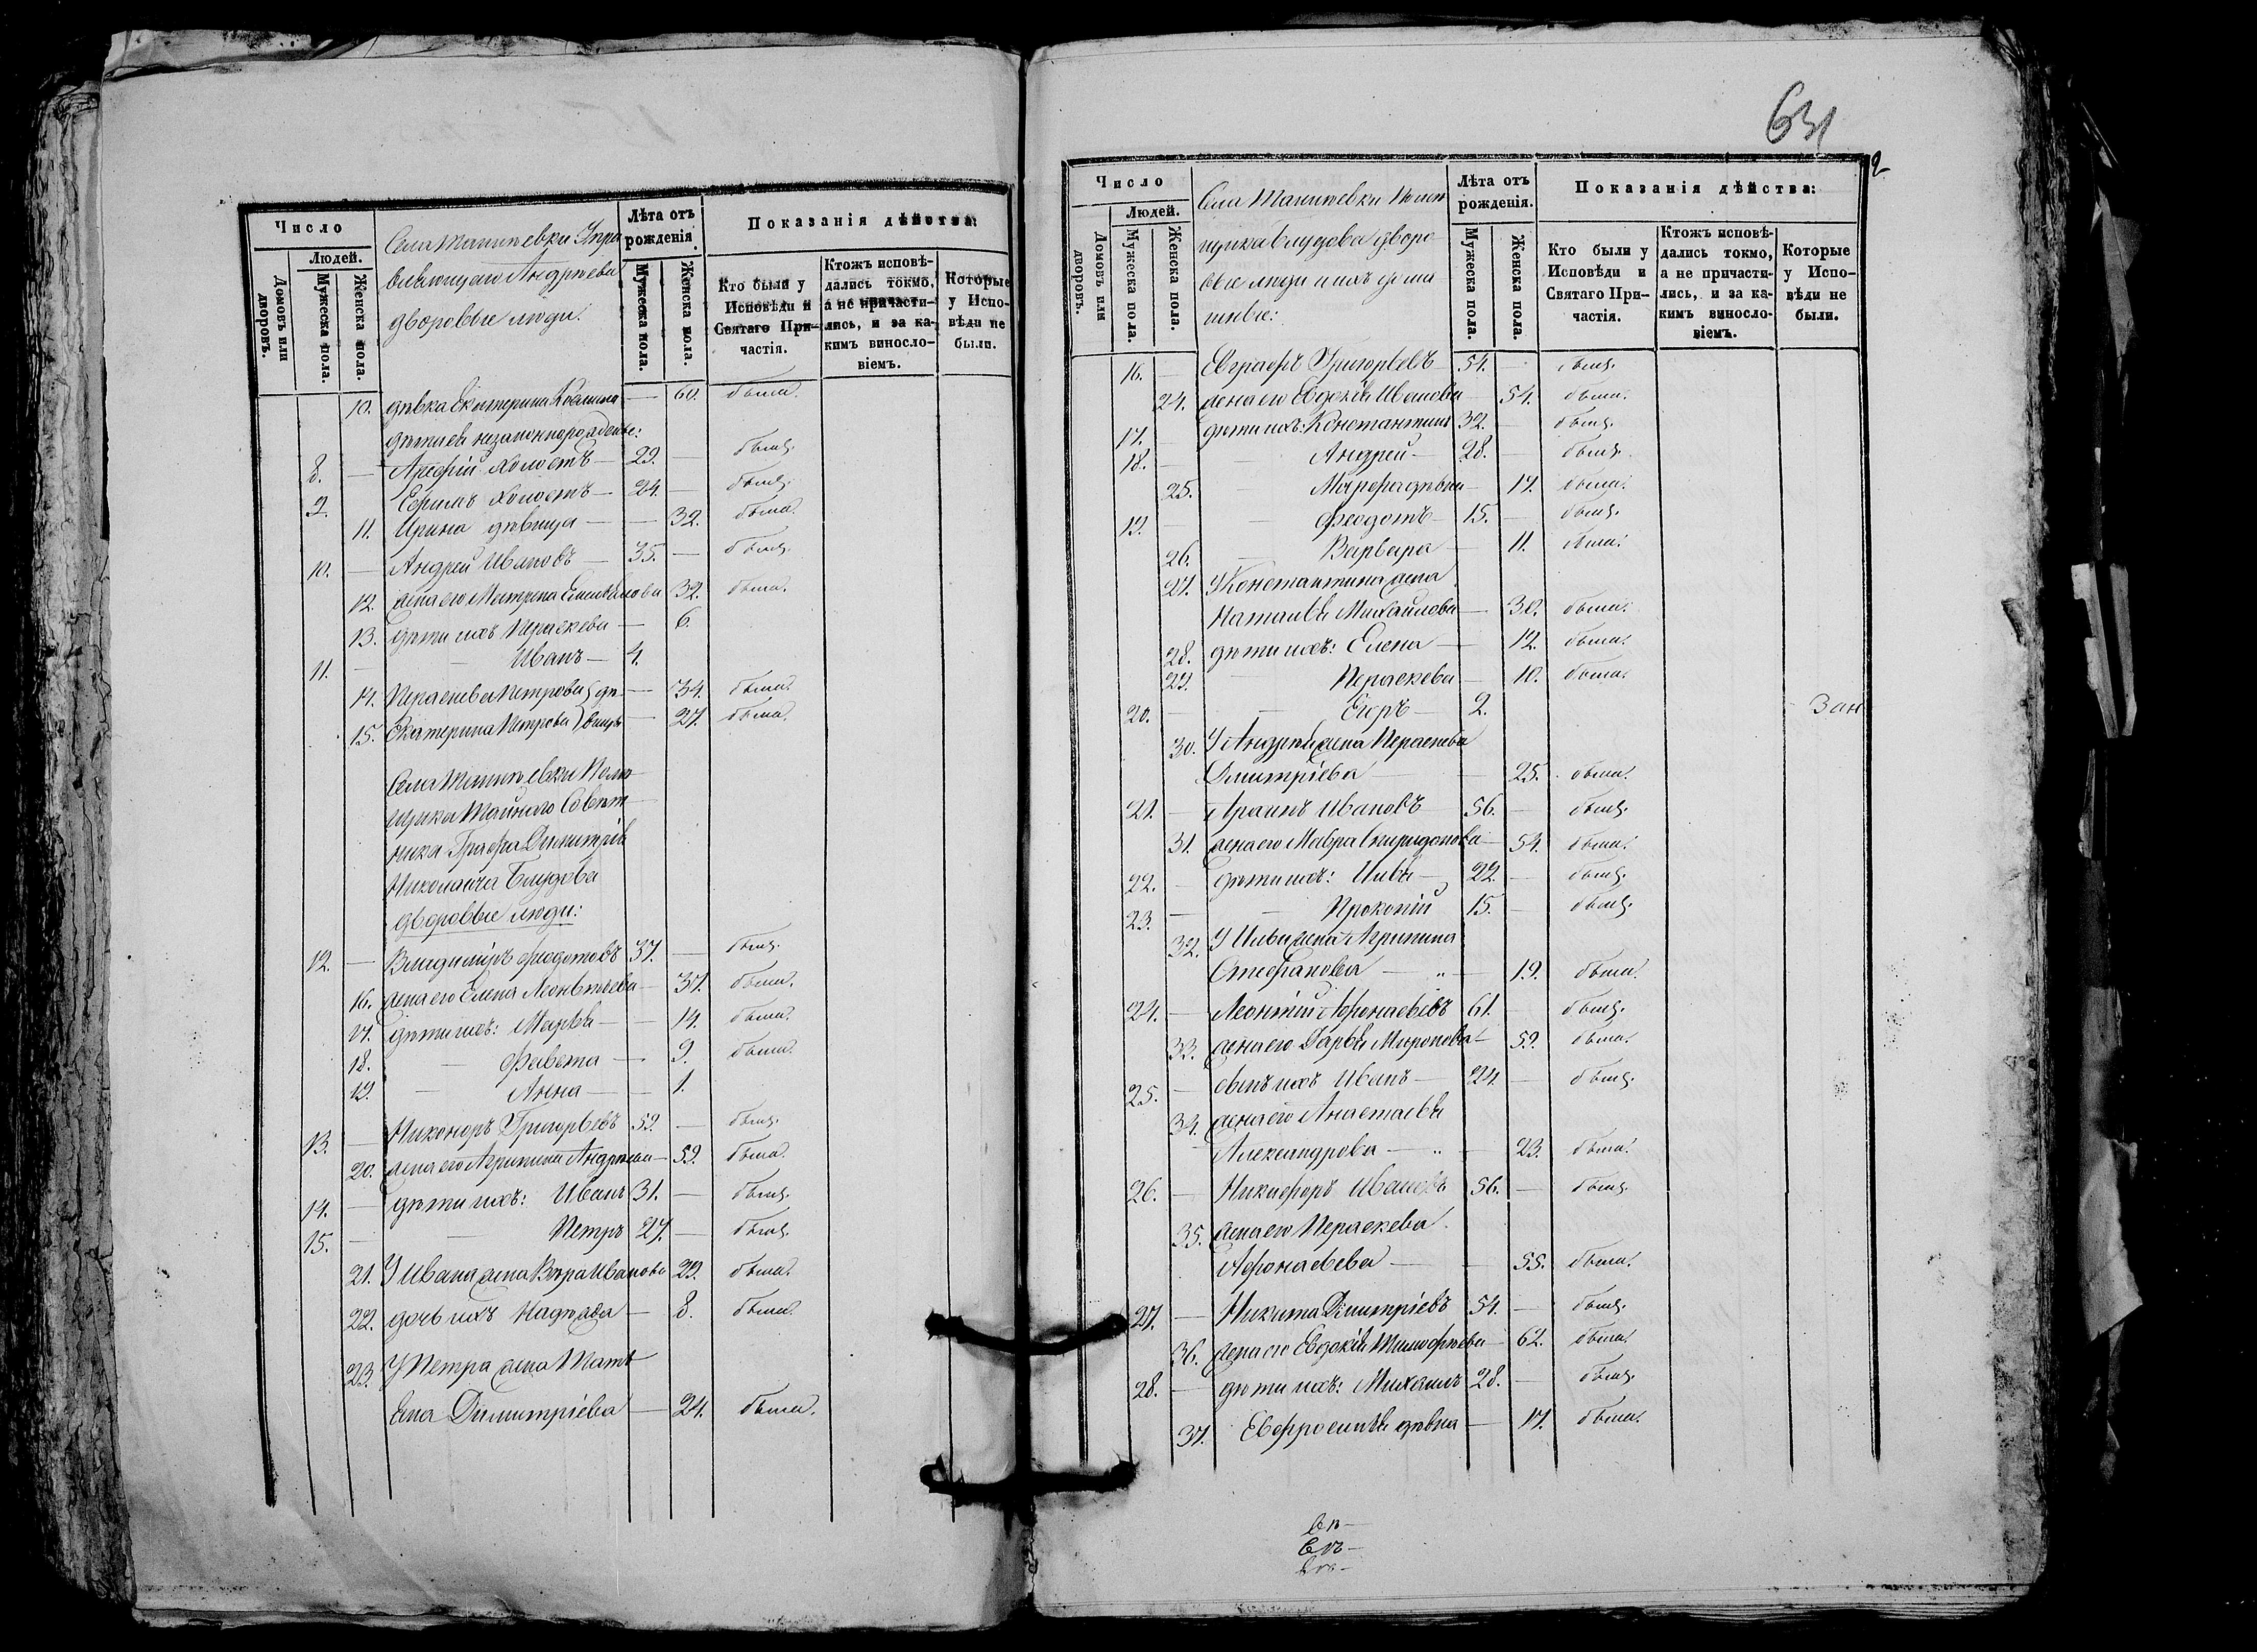 Число
Людей.
Домовъ или дворовъ.
Мужеска пола.
Женска пола.
Села Танипевки Упра
вляющаго Андреева
дворовые люди:
Лѣта отъ рожденія.
Мужеска пола.
Женска пола.
Показанія дѣйства:
Кто были у Исповѣди и Святаго При-частія.
Ктожъ исповѣ-дались токмо, а не причасти-лись, и за ка-кимъ винosло-віемъ.
Которые у Испо-вѣди не были.
10. дѣвка Екатерина — 60. была.
дѣти ея незаконнорожденные:
8. — Арефій холостъ — 29. — былъ.
9. Ефимъ холостъ — 24. — былъ.
11. Ирина дѣвица — — 32. была.
10. — Андрей Ивановъ — 35. — былъ.
12. жена его Матрена Емельянова 32. была.
13. дѣти ихъ Параскева — 6.
11. — — Иванъ — 4.
14. Параскева Петрова — 34. была.
15. Екатерина Петрова — 27. была.
Села Танипевки Помѣ
щика Тайнаго Совѣт
ника Графа Димитрія
Николаича Блудова
дворовые люди:
12. — Владиміръ Феодотовъ 37. — былъ.
16. жена его Елена Леонтьева — 37. была.
17. дѣти ихъ: Марья — — 14. была.
18. — Фавста — 9. была.
19. — Анна — — 1.
13. — Никоноръ Григорьевъ 59. — былъ.
20. жена его Агрипина Андреева — 59. была.
14. — дѣти ихъ: Иванъ 31. — былъ.
15. — — Петръ 27. — былъ.
21. У Ивана жена Вѣра Иванова 29. была.
22. дочь ихъ Надежда — 8. была.
23. У Петра жена Тать
яна Димитріева — 24. была.
631
2
Число
Людей.
Домовъ или дворовъ.
Мужеска пола.
Женска пола.
Села Танипевки Помѣ
щика Блудова дворо
вые люди и ихъ дома
шніе:
Лѣта отъ рожденія.
Мужеска пола.
Женска пола.
Показанія дѣйства:
Кто были у Исповѣди и Святаго При-частія.
Ктожъ исповѣ-дались токмо, а не причасти-лись, и за ка-кимъ винosло-віемъ.
Которые у Испо-вѣди не были.
16. — Евграфъ Григорьевъ 54. — былъ.
24. жена его Евдокія Иванова — 54. была.
17. — дѣти ихъ: Константинъ 32. — былъ.
18. — Андрей — 28. — былъ.
25. — Марфа дѣвка — 17. была.
19. — Феодотъ — 15. — былъ.
26. — Варвара — 11. была.
27. У Константина жена
Наталья Михайлова — 30. была.
28. дѣти ихъ: Елена — 12. была.
29. — Параскева — 10. была.
20. — — Егоръ — 2. Зан
30. У Андрея жена Параскева
Дмитріева — — 25. была.
21. — Иванъ Ивановъ 56. — былъ.
31. жена его Мавра Спиридонова — 54. была.
22. — дѣти ихъ: Илья — 22. — былъ.
23. — — Прокопій 15. — былъ.
32. У Ильи жена Агрипина
Стефанова — „ — 19. была.
24. — Леонтій Афонасьевъ 61. — былъ.
33. жена его Дарья Миронова — 59. была.
25. — сынъ ихъ Иванъ — 24. — былъ.
34. жена его Анастасья
Александрова — „ — 23. была.
26. — Никифоръ Ивановъ 56. — былъ.
35. жена его Параскева
Афонасьева — — 55. была.
27. — Никита Димитріевъ 54. — былъ.
36. жена его Евдокія Тимофеева — 62. была.
28. — дѣти ихъ: Михаилъ 28. — былъ.
37. Евфросинія дѣвка — 17. была.